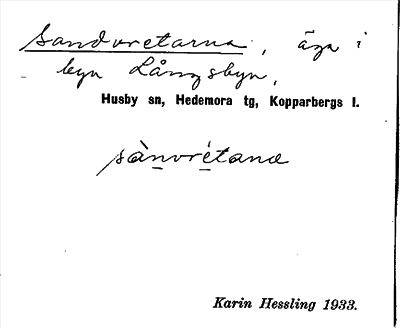 Sandvretarna, äga i
byn Långsbyn,
Husby sn, Hedemora tg, Kopparbergs l.
sànvrétanæ
Karin Hessling 1933.